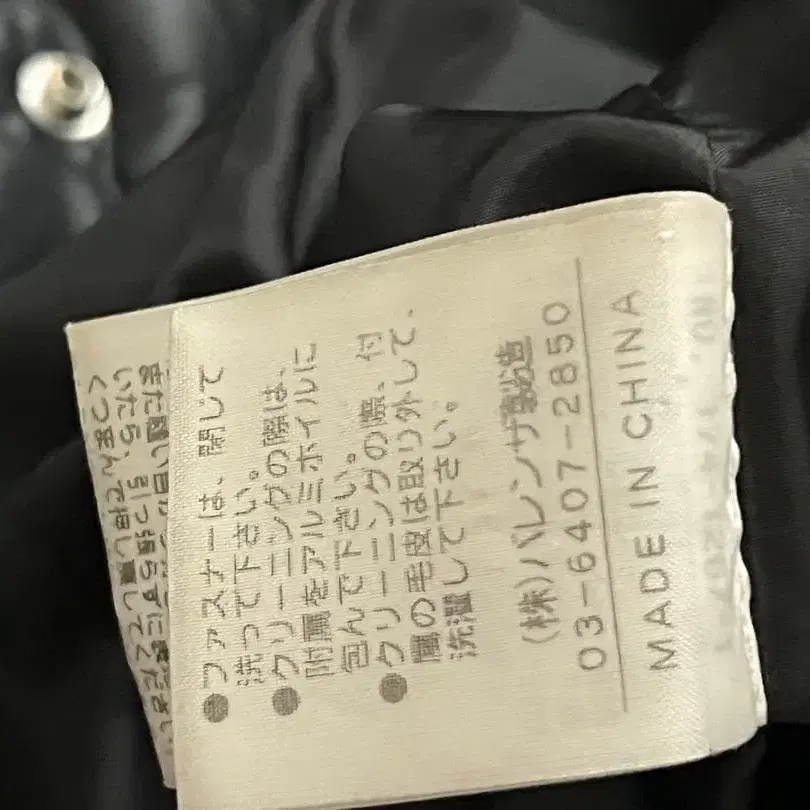 いたら、引っ張らずに
くつまんで押し戻してくださ
●ファスナーは、閉じて
洗って下さい。
●クリーニングの際は、
附属をアルミホイルに
包んで下さい。
●クリーニングの際、付
属の毛皮は取り外して、
洗濯して下さい。
(株)バレンザ製造
03-6407-2850
MADE IN CHINA